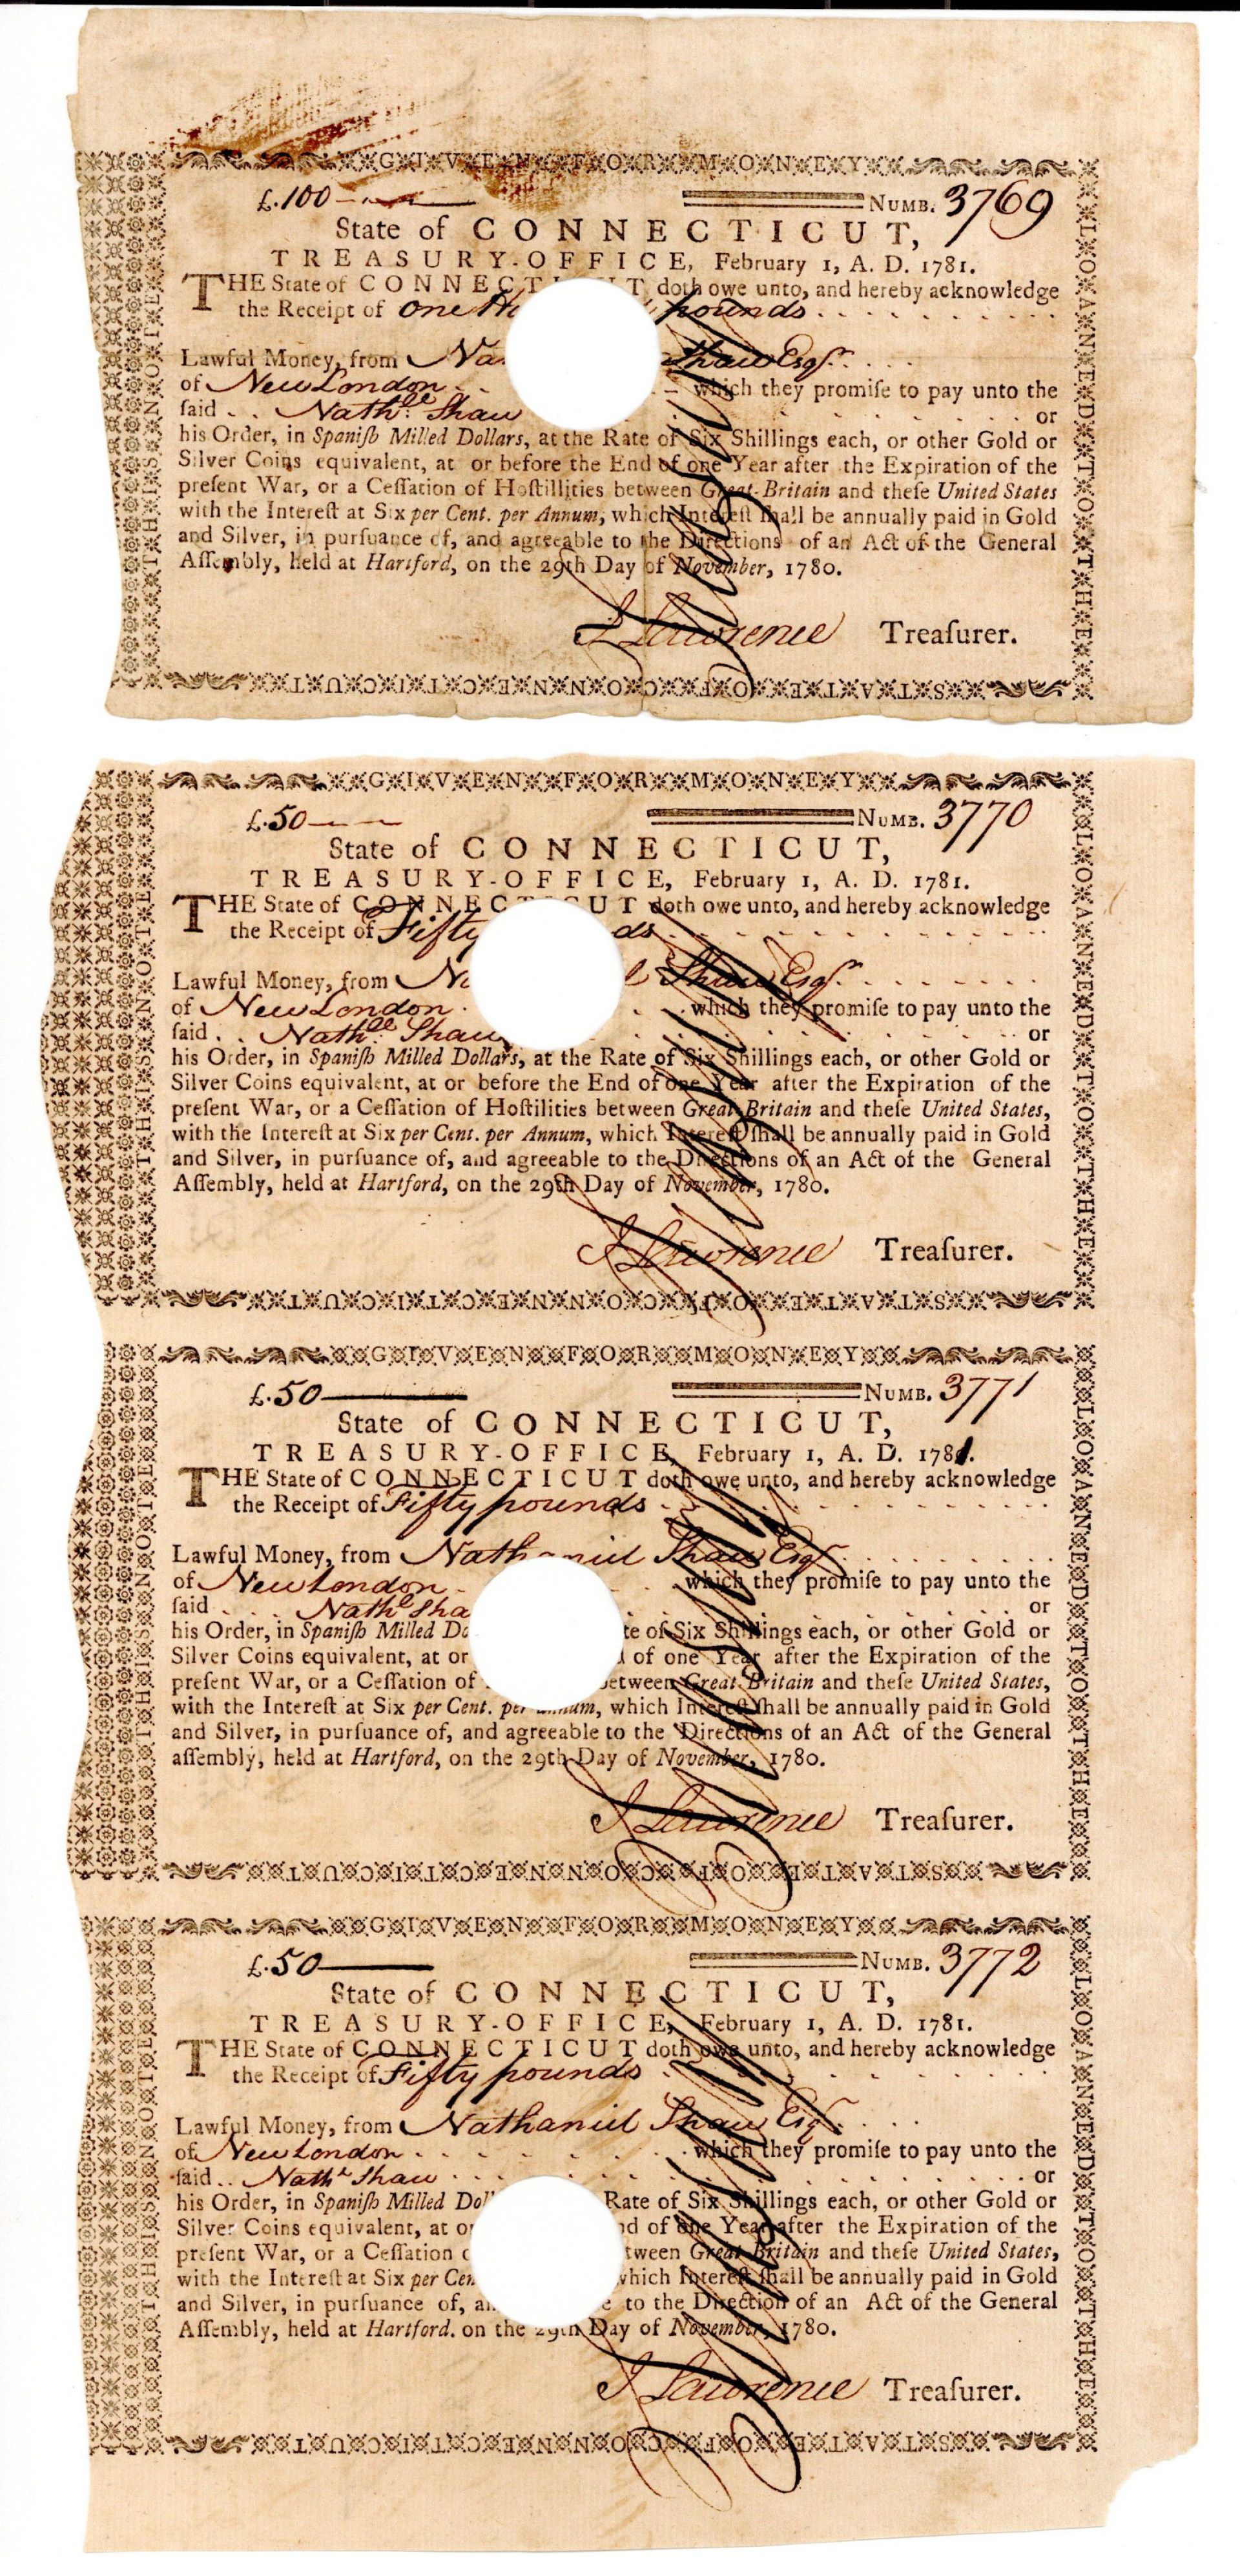 GIVEN FOR MONEY
LOANED TO THE
STATE OF CONNECTICUT
THIS NOTE
£.100
NUMB. 3769
State of CONNECTICUT,
TREASURY-OFFICE, February 1, A. D. 1781.
THE State of CONNECT T doth owe unto, and hereby acknowledge
the Receipt of one pounds
Lawful Money, from Shaw Esqr.
of New London which they promise to pay unto the
said Nathll Shaw or
his Order, in Spanish Milled Dollars, at the Rate of Six Shillings each, or other Gold or
Silver Coins equivalent, at or before the End of one Year after the Expiration of the
present War, or a Cessation of Hostillities between Great-Britain and these United States
with the Interest at Six per Cent. per Annum, which Interest shall be annually paid in Gold
and Silver, in pursuance of, and agreeable to the Directions of an Act of the General
Assembly, held at Hartford, on the 29th Day of November, 1780.
J Lawrence Treasurer.
GIVEN FOR MONEY
LOANED TO THE
STATE OF CONNECTICUT
THIS NOTE
£.50
NUMB. 3770
State of CONNECTICUT,
TREASURY-OFFICE, February 1, A. D. 1781.
THE State of CONNECTICUT doth owe unto, and hereby acknowledge
the Receipt of Fifty ds
Lawful Money, from Shaw Esqr.
of New London which they promise to pay unto the
said Nathll Shaw or
his Order, in Spanish Milled Dollars, at the Rate of Six Shillings each, or other Gold or
Silver Coins equivalent, at or before the End of one Year after the Expiration of the
present War, or a Cessation of Hostilities between Great-Britain and these United States,
with the Interest at Six per Cent. per Annum, which Interest shall be annually paid in Gold
and Silver, in pursuance of, and agreeable to the Directions of an Act of the General
Assembly, held at Hartford, on the 29th Day of November, 1780.
J Lawrence Treasurer.
GIVEN FOR MONEY
LOANED TO THE
STATE OF CONNECTICUT
THIS NOTE
£.50
NUMB. 3771
State of CONNECTICUT,
TREASURY-OFFICE, February 1, A. D. 1781.
THE State of CONNECTICUT doth owe unto, and hereby acknowledge
the Receipt of Fifty pounds
Lawful Money, from Nathaniel Shaw Esqr.
of New London which they promise to pay unto the
said Nathl Sha or
his Order, in Spanish Milled Do te of Six Shillings each, or other Gold or
Silver Coins equivalent, at or d of one Year after the Expiration of the
present War, or a Cessation of between Great-Britain and these United States,
with the Interest at Six per Cent. per Annum, which Interest shall be annually paid in Gold
and Silver, in pursuance of, and agreeable to the Directions of an Act of the General
assembly, held at Hartford, on the 29th Day of November, 1780.
J Lawrence Treasurer.
GIVEN FOR MONEY
LOANED TO THE
STATE OF CONNECTICUT
THIS NOTE
£.50
NUMB. 3772
State of CONNECTICUT,
TREASURY-OFFICE, February 1, A. D. 1781.
THE State of CONNECTICUT doth owe unto, and hereby acknowledge
the Receipt of Fifty pounds
Lawful Money, from Nathaniel Shaw Esqr.
of New London which they promise to pay unto the
said Nathl Shaw or
his Order, in Spanish Milled Dol Rate of Six Shillings each, or other Gold or
Silver Coins equivalent, at or nd of one Year after the Expiration of the
present War, or a Cessation tween Great-Britain and these United States,
with the Interest at Six per Cen which Interest shall be annually paid in Gold
and Silver, in pursuance of, to the Direction of an Act of the General
Assembly, held at Hartford. on the 29th Day of November, 1780.
J Lawrence Treasurer.